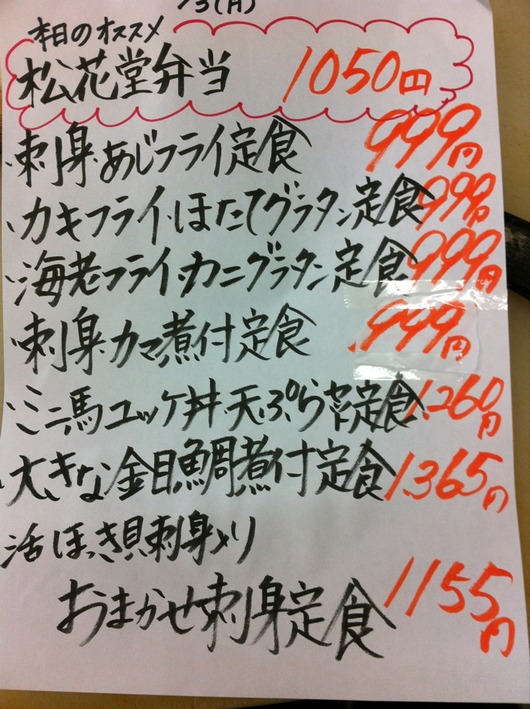 /3(月)
本日のオススメ
松花堂弁当 1050円
・刺身・あじフライ定食 999円
・カキフライ・ほたてグラタン定食 999円
・海老フライ・カニグラタン定食 999円
・刺身・カマ煮付定食 949円
・ミニ馬ユッケ丼・天ぷら定食 1260円
・大きな金目鯛煮付定食 1365円
活ほっき貝刺身入り
おまかせ刺身定食 1155円